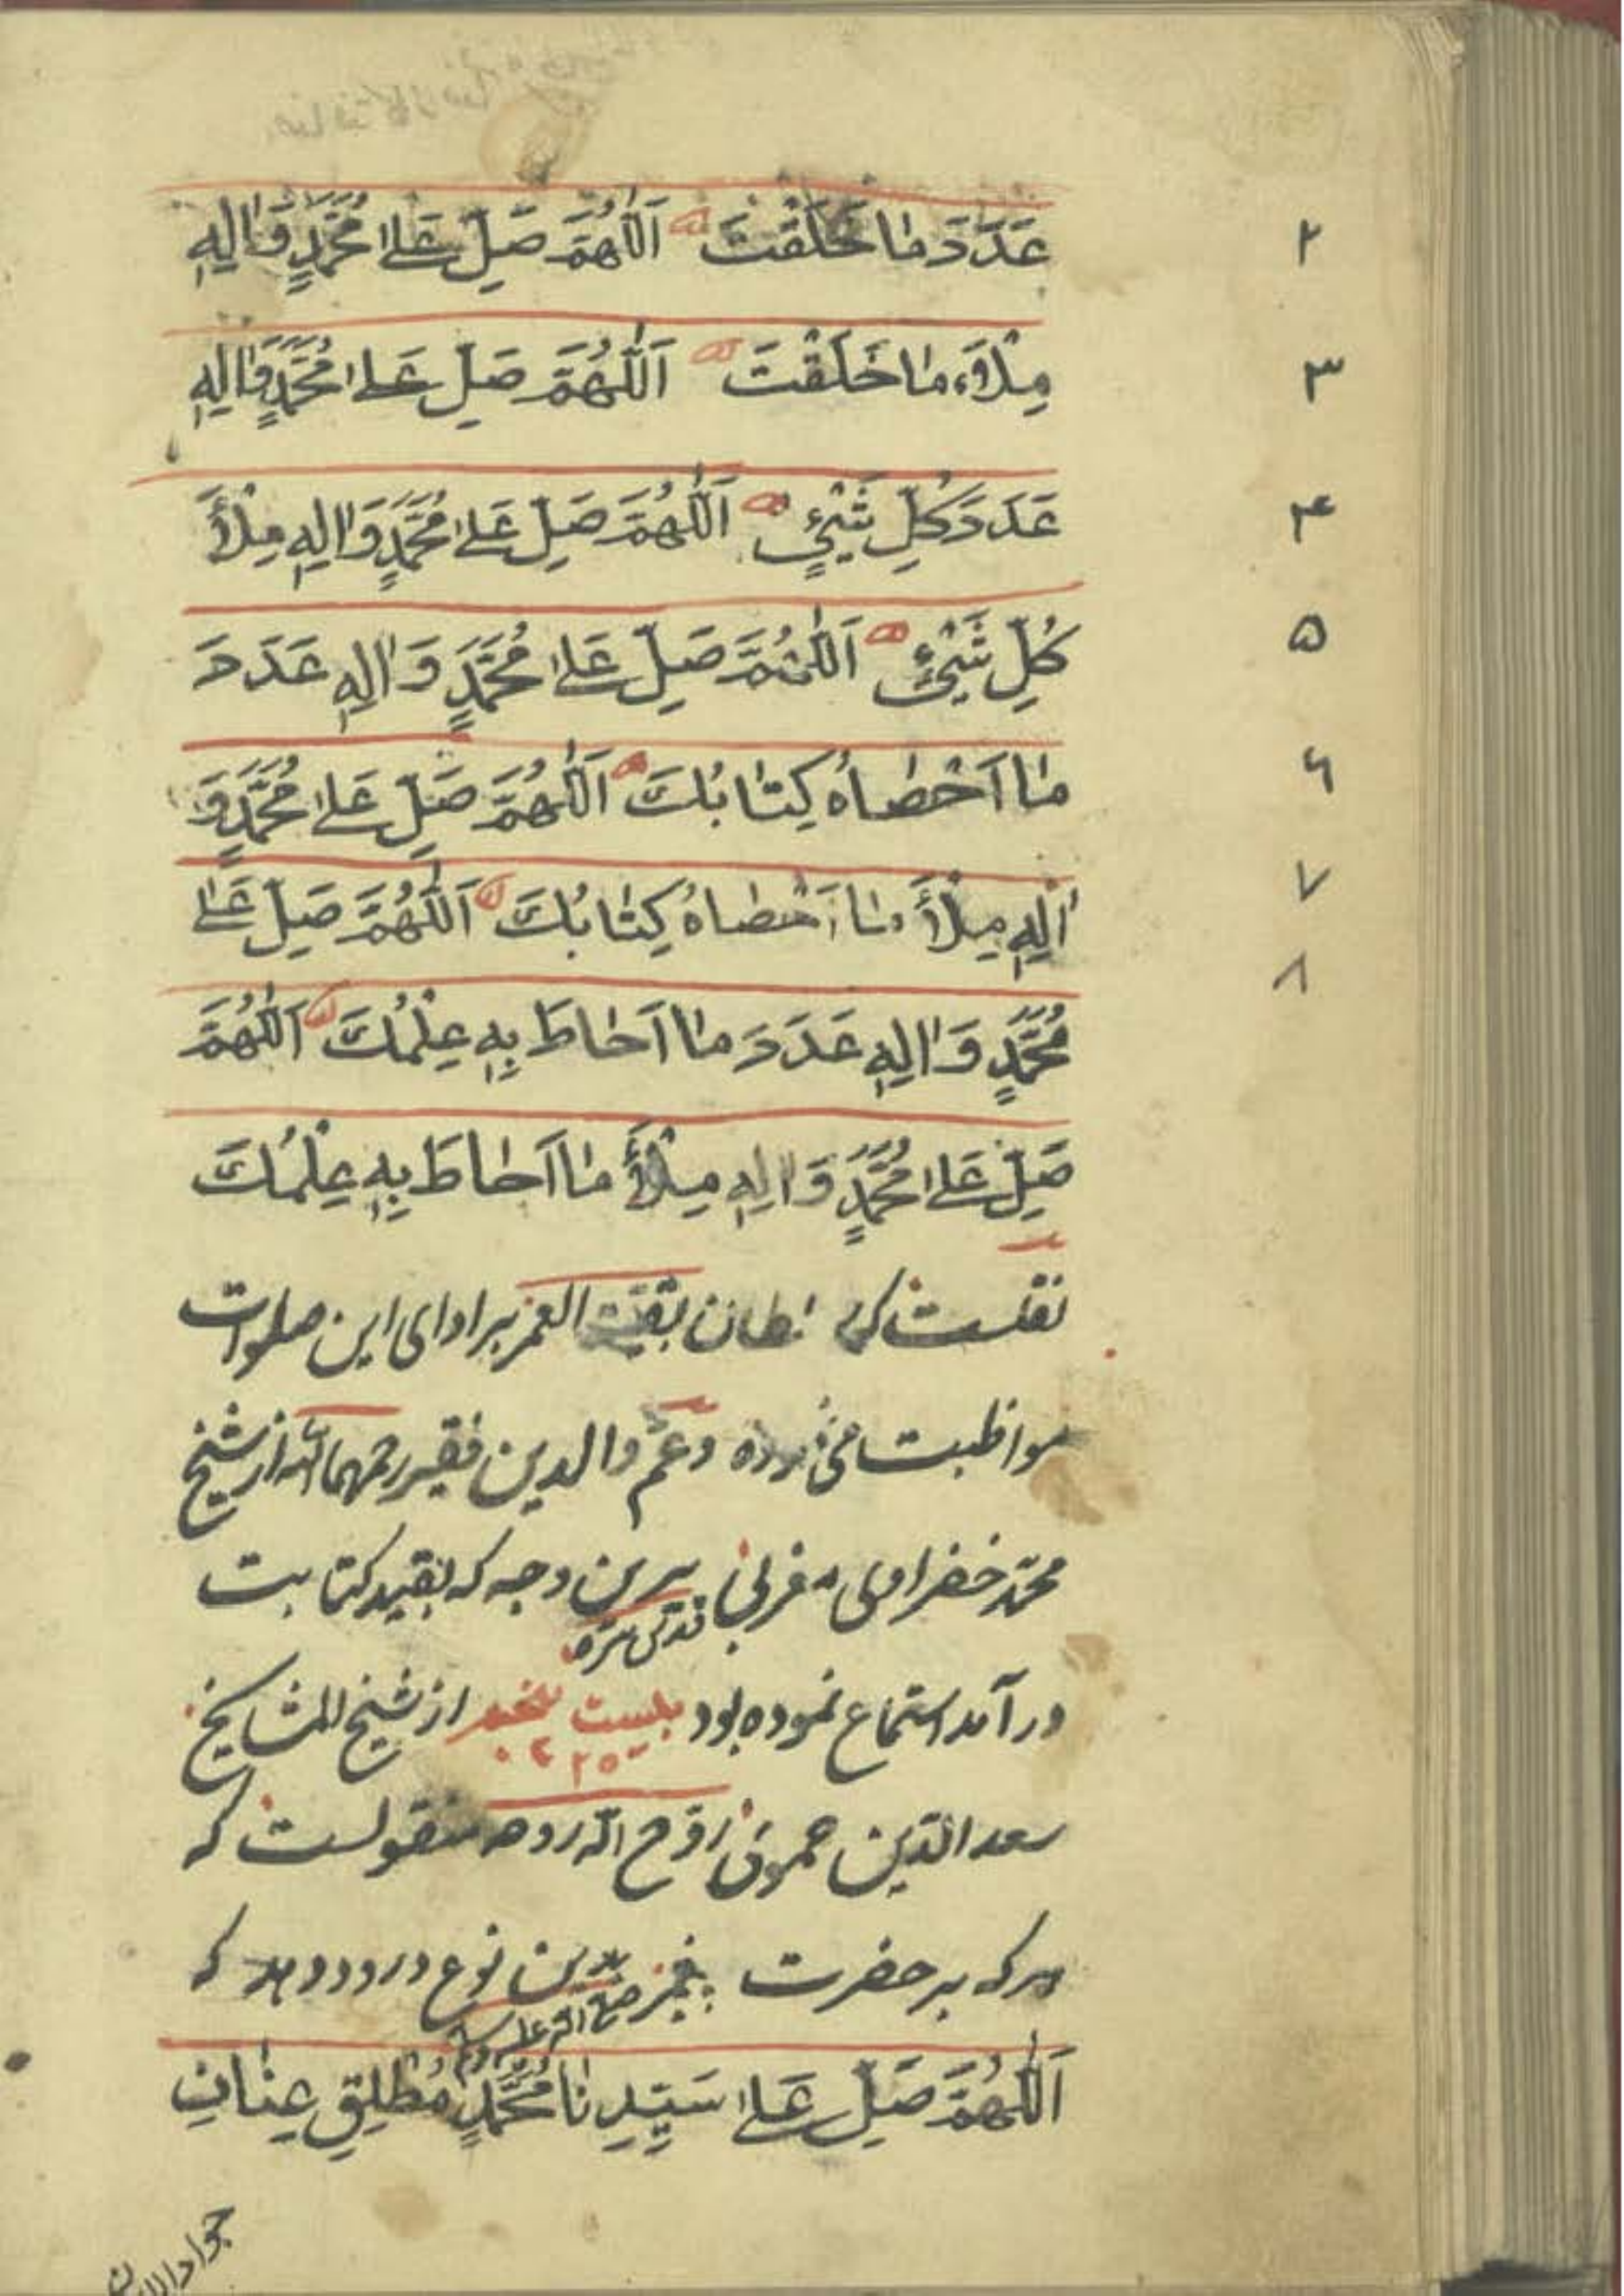 عَدَدَ مٰا خَلَقْتَ اَللّٰهُمَّ صَلِّ عَلىٰ مُحَمَّدٍ وَاٰلِهِ
۲
مِلْاَءَ مٰا خَلَقْتَ اَللّٰهُمَّ صَلِّ عَلىٰ مُحَمَّدٍ وَاٰلِهِ
۳
عَدَدَ كُلِّ شَيْئٍ اَللّٰهُمَّ صَلِّ عَلىٰ مُحَمَّدٍ وَاٰلِهِ مِلْأَ
۴
كُلِّ شَيْئٍ اَللّٰهُمَّ صَلِّ عَلىٰ مُحَمَّدٍ وَاٰلِهِ عَدَدَ
۵
مٰا اَحْصٰاهُ كِتٰابُكَ اَللّٰهُمَّ صَلِّ عَلىٰ مُحَمَّدٍ وَ
۶
اٰلِهِ مِلْأَ مٰا اَحْصٰاهُ كِتٰابُكَ اَللّٰهُمَّ صَلِّ عَلىٰ
۷
۸
مُحَمَّدٍ وَاٰلِهِ عَدَدَ مٰا اَحٰاطَ بِهِ عِلْمُكَ اَللّٰهُمَّ
صَلِّ عَلىٰ مُحَمَّدٍ وَاٰلِهِ مِلْأَ مٰا اَحٰاطَ بِهِ عِلْمُكَ
نقلست که بقیت العمر بر ادای این صلوات
مواظبت می نموده وعم والدین فقیر رحمهما الله از شیخ
محمد خضراوی مغربی قدس سره بدین وجه که بقید کتابت
در آمد استماع نموده بود بیست پنجم ۲۵ از شیخ المشایخ
سعد الدین حموئی روّح الله روحه منقولست که
هرکه بر حضرت پیغمبر صلی الله علیه وسلم بدین نوع درود دهد که
اَللّٰهُمَّ صَلِّ عَلىٰ سَيِّدِنٰا مُحَمَّدٍ مُطْلِقِ عِنٰانِ